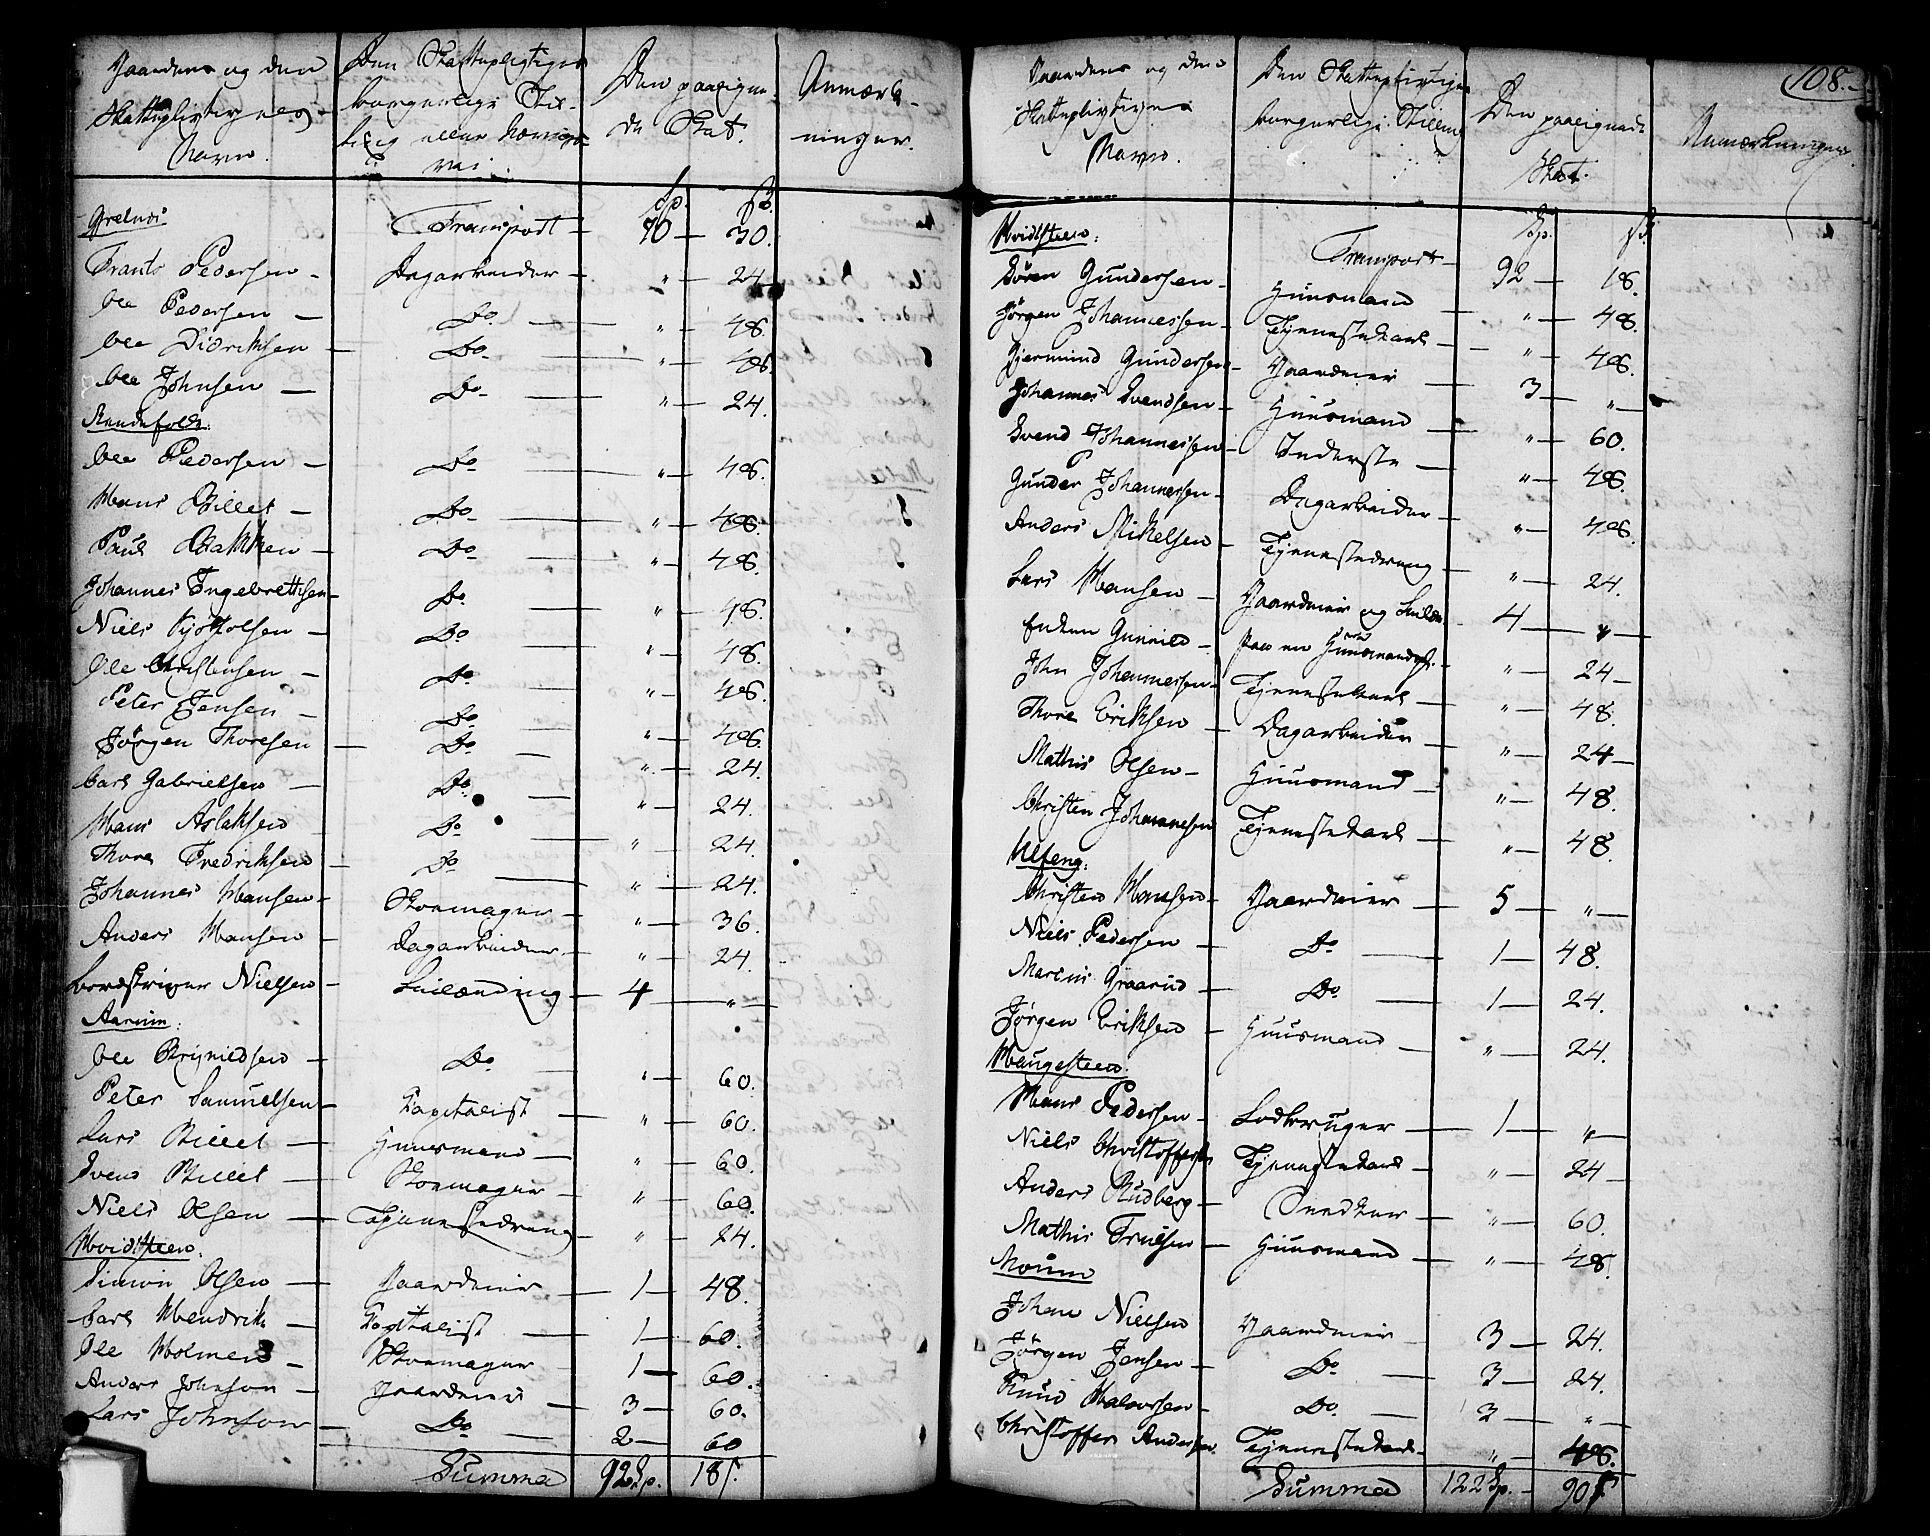 Gaardens og den
Skattepligtiges
Navn.
Den Skattepligtiges
borgerlige Stil-
ling eller Nærings-
vei.
Den paalign-
de Skat.
Anmærk-
ninger.
Sp. ß.
Grelnæs Transport — 70 — 30.
Frants Pedersen — Dagarbeider — " — 24.
Ole Pedersen — Do — " — 48.
Ole Didriksen — Do — " — 48.
Ole Johnsen — Do — " — 24.
Ole Pedersen — Do — " — 48.
Hans Billet — Do — " — 48.
Paul Bakken — Do — " — 48.
Johannes Ingebrettsen — Do — " — 48.
Niels Kjøstolsen — Do — " — 48.
Ole Christensen — Do — " — 48.
Peter Jensen — Do — " — 48.
Jørgen Thoresen — Do — " — 24.
Carl Gabrielsen — Do — " — 24.
Hans Aslaksen — Do — " — 24.
Thore Fredriksen — Do — " — 24.
Johannes Hansen — Skomager — " — 36.
Anders Hansen — Dagarbeider — " — 24.
Nielsen — Leilænding — 4 — "
Aarum:
Ole Brynildsen — Do — " — 60.
Peter Samuelsen — Kapitalist — " — 60.
Lars Billet — Huusmand — " — 60.
Svend Billet — Skomager — " — 60.
Niels Olsen — Tjenestedreng — " — 24.
Hvidsteen.
Simon Olsen — Gaardeier — 1 — 48.
Carl Hendrik — Kapitalist — 1 — 60.
Ole Holmen — Skomager — 1 — 60.
Anders Johnson — Gaardeier — 3 — 60.
Lars Johnson — Do — 2 — 60
Summa 92 Sp. 18 ß.
108.
Gaardens og den
Skattepligtiges
Navn.
Den Skattepligtiges
borgerlige Stilling
Den paalignede
Skat.
Anmærkninger
Sp. ß.
Hvidsteen: Transport — 92 — 18.
Søren Gundersen — Huusmand — " — 48.
Jørgen Johannessen — Tjenestekarl — " — 48.
Gjermund Gundersen — Gaardeier — 3 — "
Johannes Svendsen — Huusmand — " — 60.
Svend Johannessen — Inderste — " — 48.
Gunder Johannessen — Dagarbeider — " — 48.
Anders Mikelsen — Tjenestedreng — " — 24.
Lars Hansen — Gaardeier og — 4 — "
Enken Gunnild — paa en — " — 24
John Johannessen — Tjenestekarl — " — 48.
Thore Eriksen — Dagarbeider — " — 24
Mathis Olsen — Huusmand — " — 48.
Christen Johannesen — Tjenestekarl — " — 48.
Ulfeng:
Christen Hansen — Gaardeier — 5 — "
Niels Pedersen — Do — 1 — 48.
Marcus Graarud — Do — 1 — 24.
Jørgen Eriksen — Huusmand — " — 24.
Haugesteen.
Hans Pedersen — Lodbruger — 1 — "
Niels Christoffersen — Tjenestekarl — " — 24
Anders Rudberg — Snedker — " — 60.
Mathis Truelsen — Huusmand — " — 48.
Moum
Johan Nielsen — Gaardeier — 3 — 24.
Jørgen Jensen — Do — 3 — 24.
Knud Halvorsen — Do — 3 — "
Christoffer Andersen — Tjenestekarl — " — 48.
Summa 122 Sp. — 90 ß